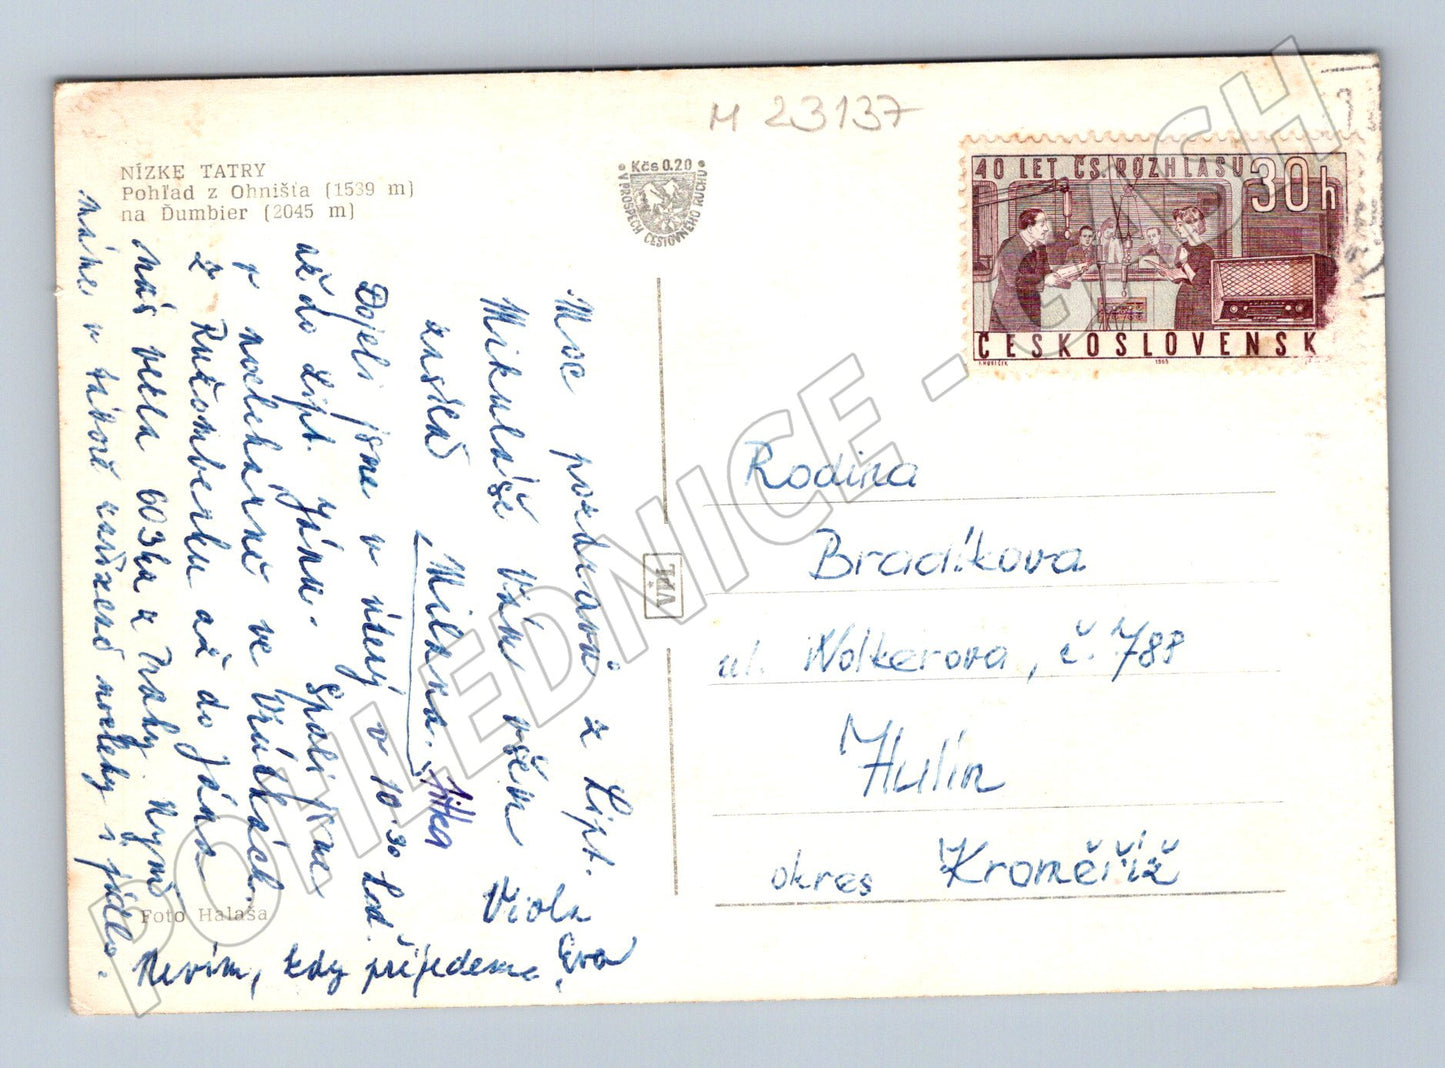 M 23137
NÍZKE TATRY
Pohľad z Ohnišťa (1539 m)
na Ďumbier (2045 m)
Kčs 0.20
V PROSPECH CESTOVNÉHO RUCHU
40 LET ČS. ROZHLASU
30 h
ČESKOSLOVENSKO
1963
Moc pozdravů z Lipt.
Mikuláše Vám všem
Viola
Milena. Jitka
Eva
Dojeli jsme v úterý v 10.30 hod.
až do Lipt. Jána. Spali jsme
v noclehárně ve Vrútkách.
z Ružomberku až do Jána
nás vezla 603ka z Prahy. Nyní
máme v táboře zařízené noclehy s jídlem.
Nevím, kdy přijedeme.
Foto Halaša
VPL
Rodina
Bradíkova
ul. Wolkerova, č. 788
Hulín
okres Kroměříž
POHLEDNICE - CASH